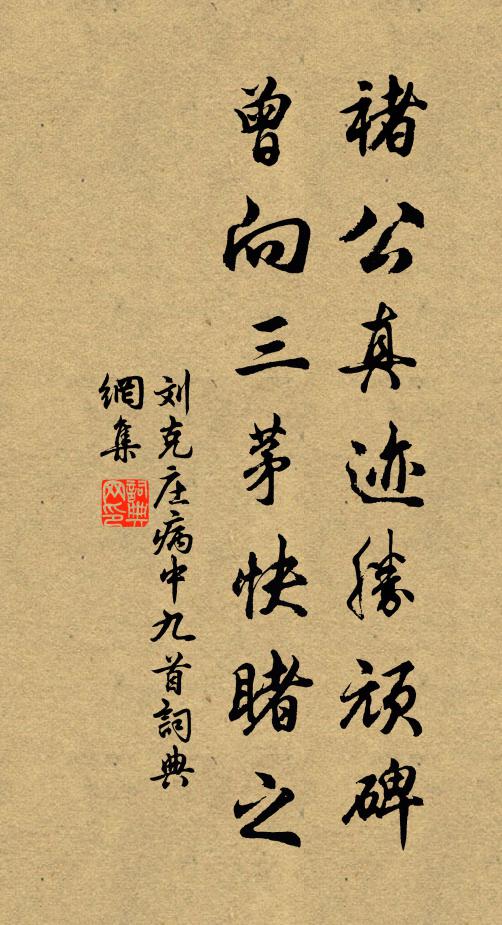 褚公真迹勝頑碑
曾向三茅快睹之
刘克庄病中九首詞典
網集
詞典
网印